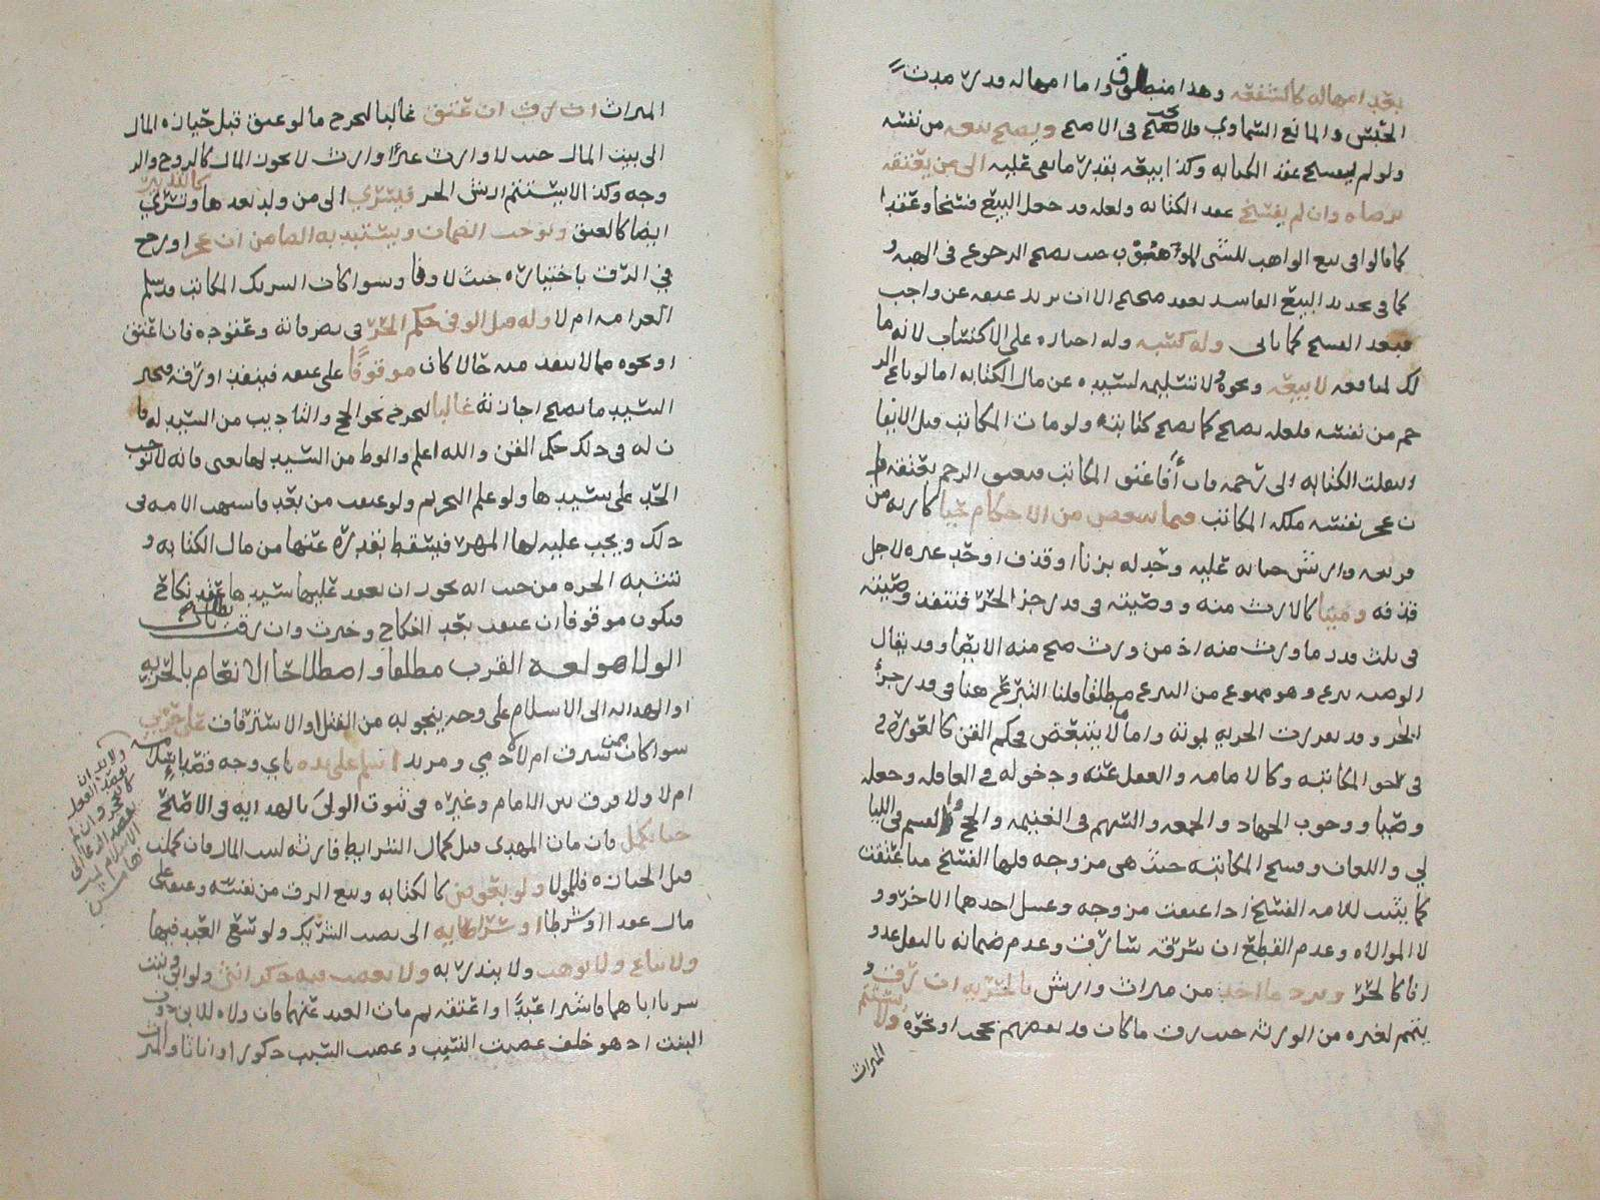 بعد امهاله كالشفعه وهذا منطوق واما امهاله قدر مدت
الحبس والمانع السماوي فلا يصح في الاصح ويصح بيعه من نفسه
ولو لم يفسخ عقد الكتابه وكذا بيعه بقدر ما بقي عليه الى من يعتقه
برضاه وان لم يفسخ عقد الكتابه ولعله قد جعل البيع فسخا وعقدا
كما قالوا في بيع الواهب للشي الموهوب حيث يصح الرجوع في الهبه و
كما في تجديد البيع الفاسد بعقد صحيح الا ان يريد عتقه عن واجب
فبعد الفسخ كما ياتي وله كسبه وله اجباره على الاكتساب لانه ما
لك لمنافعه لا بيعه ونحوه لا تسليمه لسيده عن مال الكتابه اما لو باع الر
حم من نفسه فلعله يصح كما يصح كتابته ولو مات المكاتب قبل الايفا
المكاتب فيعتق الرحم بعتقه فا
ن عجز نفسه ملكه المكاتب فيما يتبعض من الاحكام حيا كارته من
قريبه وارش جنايه عليه وحد له بزنا او قذف او حد غيره لاجل
قذفه وميتا كالارث منه ووصيته في قدر جزء الحر فتنفذ وصيته
في ثلث قدر ما ورث منه اذ من ورث صح منه الايصا وقد يقال
الوصيه تبرع وهو ممنوع من التبرع مطلقا قلنا التبرع هنا في قدر جزء
الحر وقد تقررت الحريه لموته واما لا يتبعض في حكم القن كالعوره و
في نحو المكاتبه وكالامامه والعقل عنه ودخوله في العاقله وجعله
وصيا ووجوب الجهاد والجمعه والسهم في الغنيمه والحج والقسم في الليا
لي واللعان وفسخ المكاتبه حيث هي مزوجه فلها الفسخ متى عتقت
كما يثبت للامه الفسخ اذا عتقت مزوجه وغسل احدهما الاخر و
لا الموالاه وعدم القطع ان سرقه سارق وعدم ضمانه بالنقل عدو
انا كالحر ويرد ما اخذ من ميراث وارش بالحريه ان رق و
يتمم لغيره من الورثه حيث رق ما كان قد نقصهم بحجب او نحوه ولا يستتم
الميراث
الميراث ان رق ان عتق غالبا لتخرج ما لو عتق قبل حيازه المال
الى بيت المال حيث لا وارث غيره او وارث لا يحوز المال كالزوج والز
وجه وكذا لا يستتم ارش الحر فيسري الى من ولد بعدها ويسري كالتدبير
ايضا كالعتق ويوجب الضمان ويستبد به الضامن ان عجز او رجع
في الرق باختياره حيث لا وفا وسوا كان الشريك المكاتب قد سلم
الغرامه ام لا وله قبل الوفى حكم الحر في تصرفاته وعقوده فان اعتق
او نحوه مما لا ينفذ منه حالا كان موقوفا على عتقه فينفذ او رقه
السيد ما يصح اجازته غالبا لتخرج نحو الحج والتاديب من السيد له فا
ن له في ذلك حكم القن والله اعلم والوطء من السيد لها يعني فانه لا يوجب
الحد على سيدها ولو علم التحريم ولو عتقت من بعد فاشبهت الامه في
ذلك ويجب عليه لها المهر فيسقط بقدره عنها من مال الكتابه و
تشبه الحره من حيث انه يجوز ان يعقد عليها سيدها عقد نكاح
فيكون موقوفا ان عتقت نفذ النكاح وخيرت وان رقت بطل
باب
الولا هو لغه القرب مطلقا واصطلاحا الانعام بالحريه
او الهدايه الى الاسلام على وجه ينجو به من القتل او الاسترقاق على حربي
سوا كان ممن يسترق ام لا لا ذمي ومرتد اسلم على يده باي وجه
ام لا ولا فرق بين الامام وغيره في ثبوت الولى بالهدايه في الاصح
حتى تكمل فان مات المهدى قبل كمال الشرايط فارثه لبيت المال فان كملت
قبل الحيازه فللمولا ولو بعوض كالكتابه وبيع الرق من نفسه وعتقه على
مال عقدا او شرطا او سرايه الى نصيب الشريك ولو سعى العبد فيها
ولا يباع ولا يوهب ولا ينذر به ولا يعصب فيه ذكر انثى ولو ابن وبنت
شريا اباهما فاشترا عبدا واعتقه ثم مات العبد عنهما فان ولاه للابن دون
البنت اذ هو خلف عصبت النسب وعصبت السبب ذكورا واناثا والمراد
ولا بد ان
يقصد الفعل